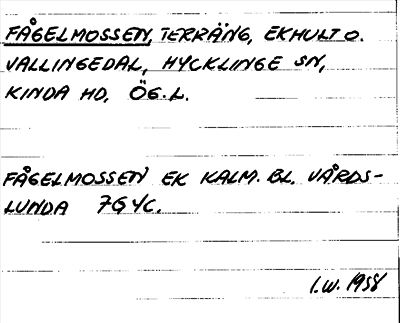 FÅGELMOSSEN, TERRÄNG, EKHULT O.
VALLINGEDAL, HYCKLINGE SN,
KINDA HD, ÖG.L.
FÅGELMOSSEN EK KALM. BL. VÅRDS-
LUNDA 7G4C.
I.W. 1958